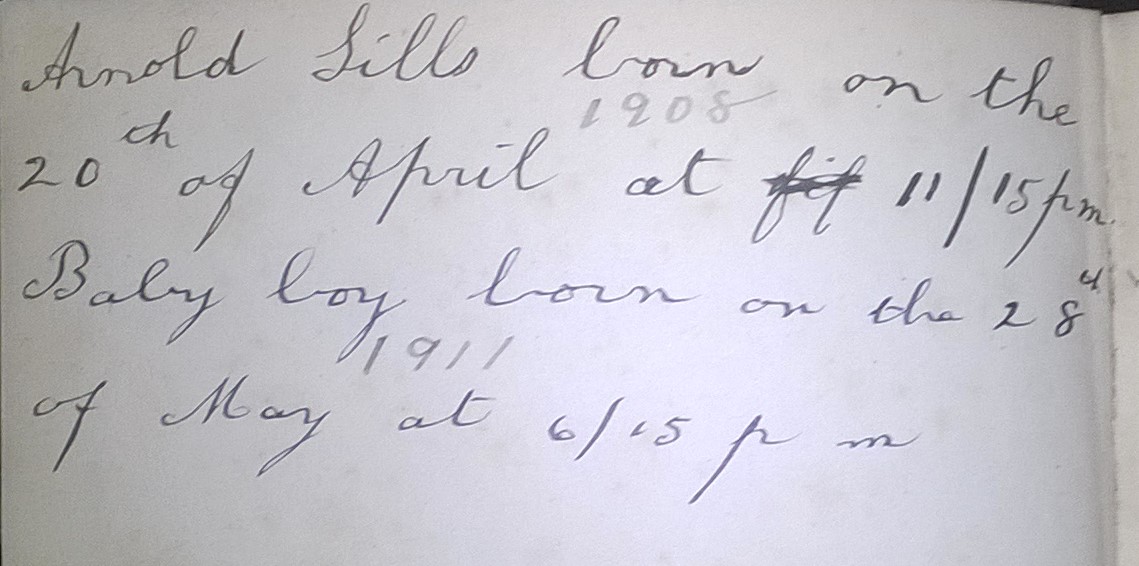 Arnold Sills born on the
1908
20th of April at 11/15 pm.
Baby boy born on the 28th
1911
of May at 6/15 p m